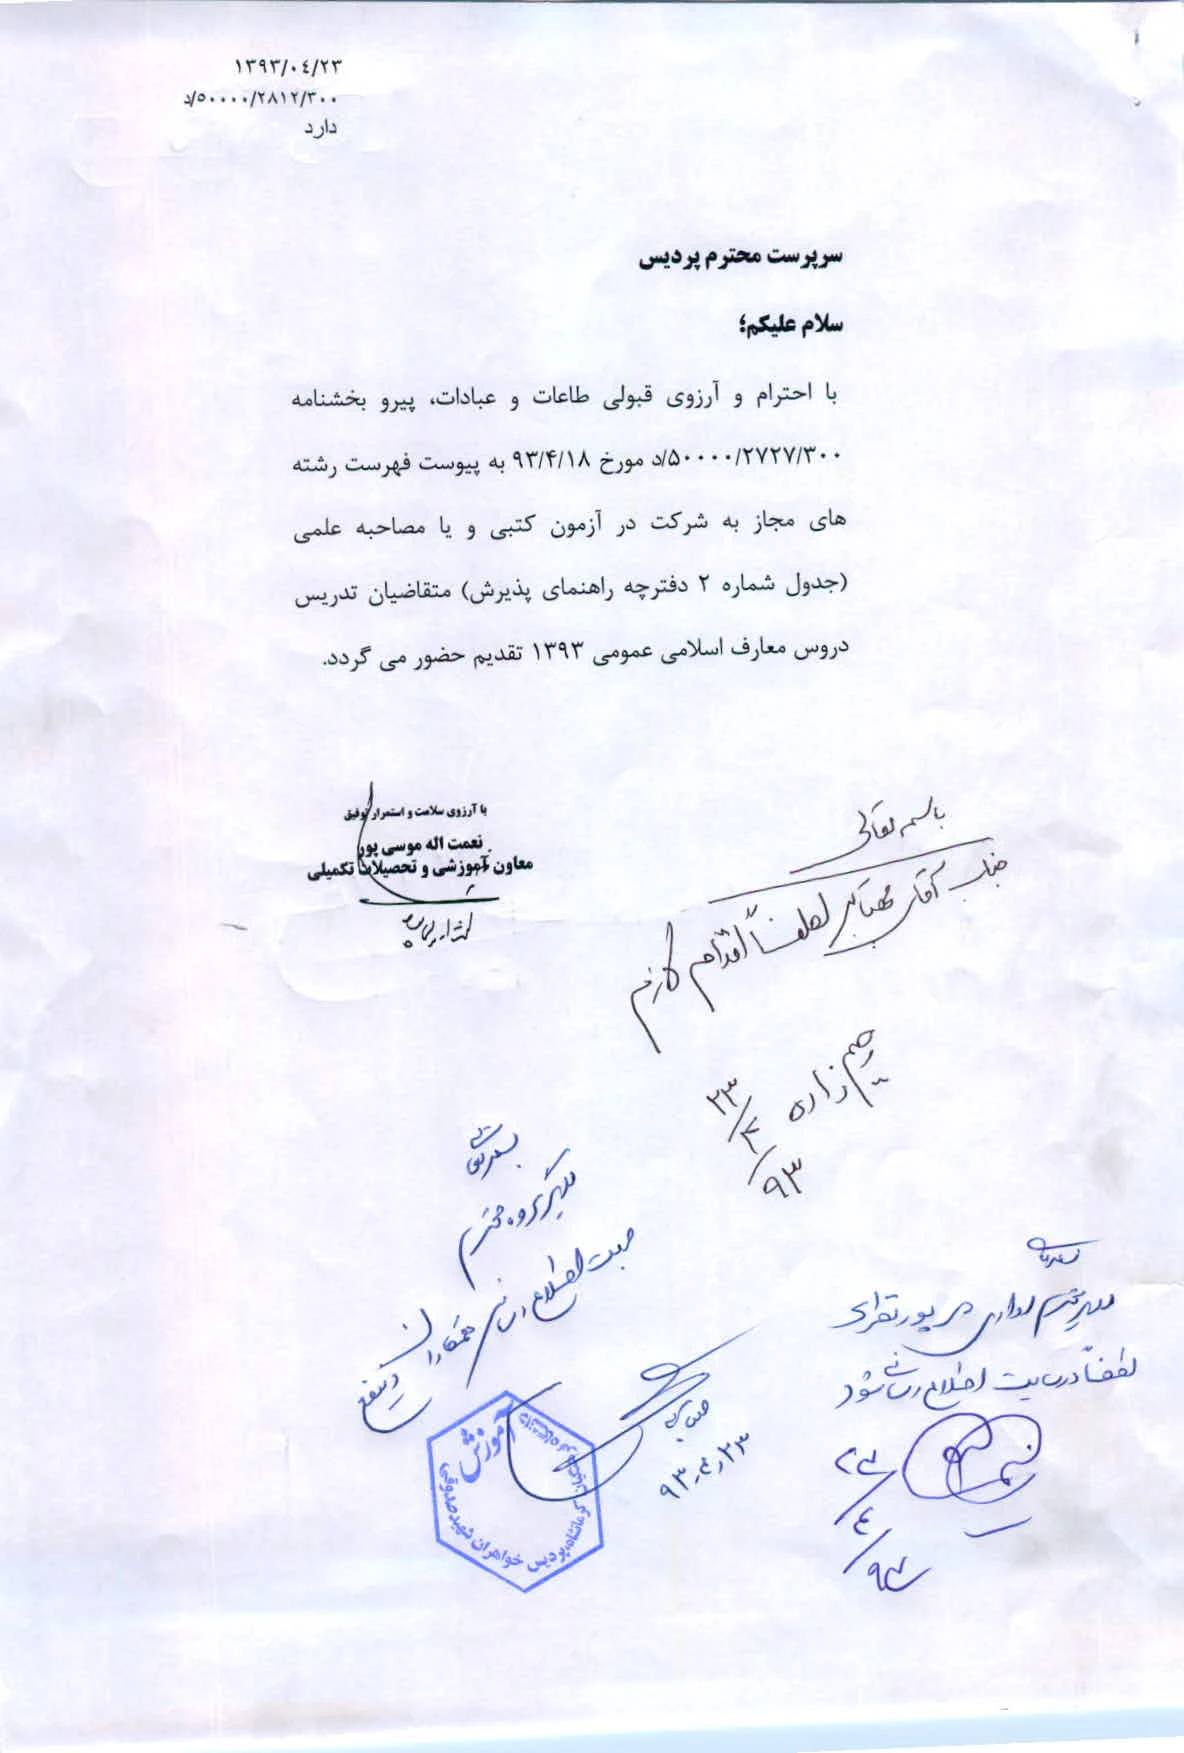 ۱۳۹۳/۰۴/۲۳
۵۰۰۰۰/۲۸۱۲/۳۰۰/د
دارد
سرپرست محترم پردیس
سلام علیکم؛
با احترام و آرزوی قبولی طاعات و عبادات، پیرو بخشنامه
۵۰۰۰۰/۲۷۲۷/۳۰۰/د مورخ ۹۳/۴/۱۸ به پیوست فهرست رشته
های مجاز به شرکت در آزمون کتبی و یا مصاحبه علمی
(جدول شماره ۲ دفترچه راهنمای پذیرش) متقاضیان تدریس
دروس معارف اسلامی عمومی ۱۳۹۳ تقدیم حضور می گردد.
با آرزوی سلامت و استمرار توفیق
نعمت اله موسی پور
معاون آموزشی و تحصیلات تکمیلی
باسمه تعالی
جناب آقای لطفاً اقدام لازم
رحیم زاده
۲۳/۴/۹۳
بسمه تعالی
مدیر گروه محترم
جهت اطلاع رسانی همکاران ذینفع
۹۳/۴/۲۳
آموزش
کرمانشاه، پردیس خواهران شهید صدوقی
مدیر محترم
لطفاً در سایت اطلاع رسانی شود
۲۳/۴/۹۳